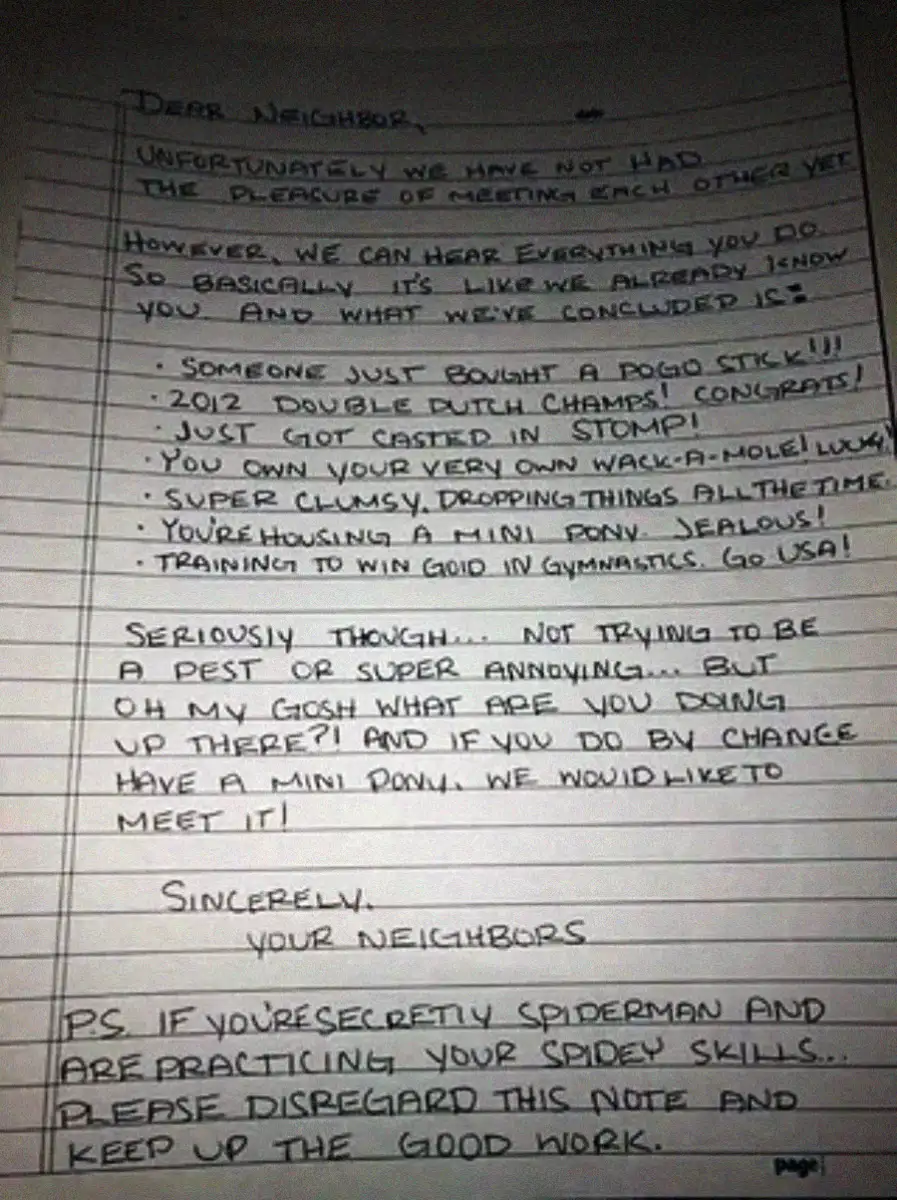 DEAR NEIGHBOR,
UNFORTUNATELY WE HAVE NOT HAD
THE PLEASURE OF MEETING EACH OTHER YET
HOWEVER, WE CAN HEAR EVERYTHING YOU DO.
SO BASICALLY IT'S LIKE WE ALREADY KNOW
YOU AND WHAT WE'VE CONCLUDED IS:
· SOMEONE JUST BOUGHT A POGO STICK!!!
· 2012 DOUBLE DUTCH CHAMPS! CONGRATS!
· JUST GOT CASTED IN STOMP!
· YOU OWN YOUR VERY OWN WACK-A-MOLE! LUCKY!
· SUPER CLUMSY. DROPPING THINGS ALL THE TIME.
· YOU'RE HOUSING A MINI PONY. JEALOUS!
· TRAINING TO WIN GOLD IN GYMNASTICS. GO USA!
SERIOUSLY THOUGH... NOT TRYING TO BE
A PEST OR SUPER ANNOYING... BUT
OH MY GOSH WHAT ARE YOU DOING
UP THERE?! AND IF YOU DO BY CHANCE
HAVE A MINI PONY. WE WOULD LIKE TO
MEET IT!
SINCERELY.
YOUR NEIGHBORS
P.S. IF YOU'RE SECRETLY SPIDERMAN AND
ARE PRACTICING YOUR SPIDEY SKILLS...
PLEASE DISREGARD THIS NOTE AND
KEEP UP THE GOOD WORK.
page